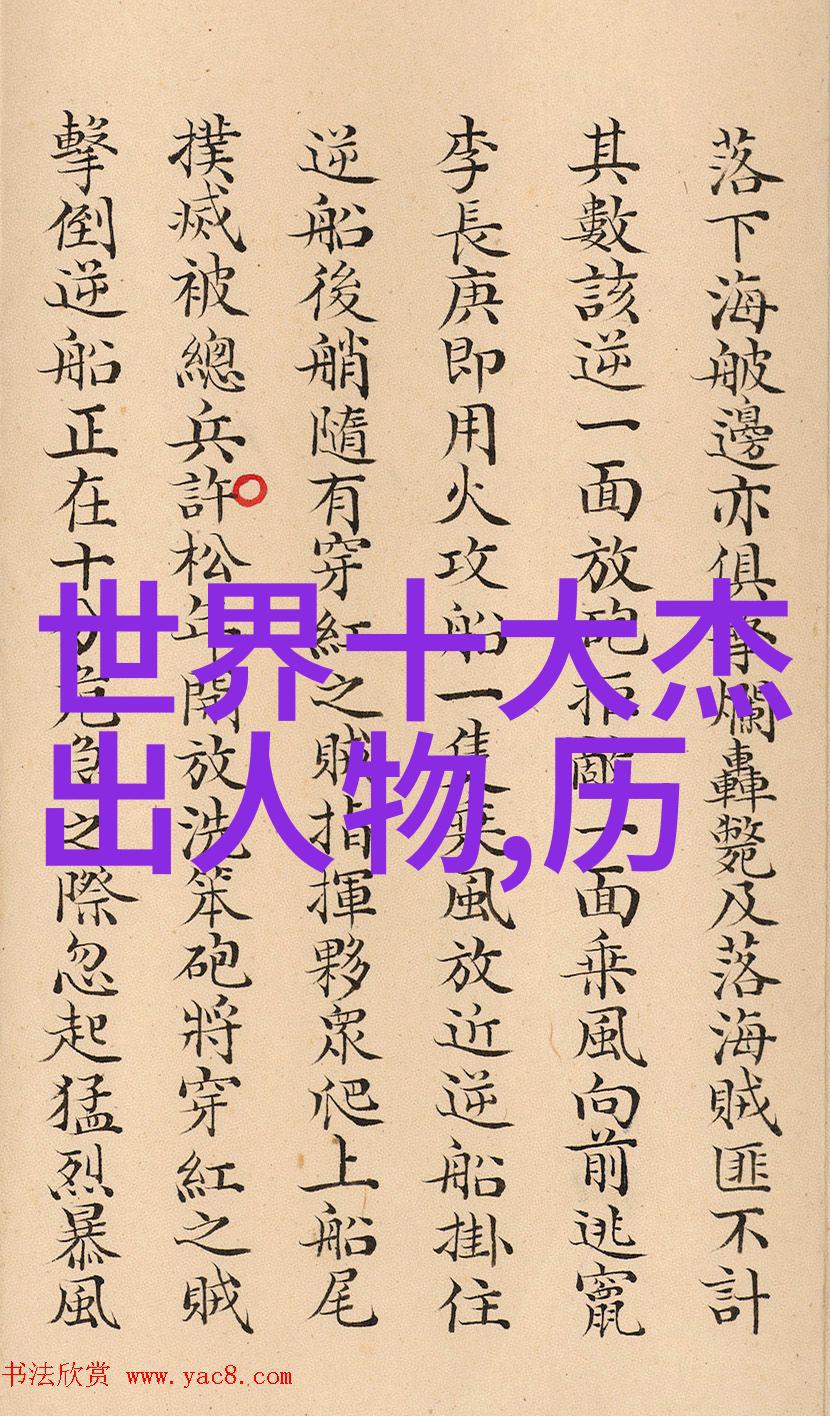 落下海舨邊亦俱拏爛轟斃及落海賊匪不計
其數該逆一面放砲拒敵一面乗風向前逃竄
李長庚即用火攻船一隻乗風放近逆船掛住
逆船後艄隨有穿紅之賊指揮夥衆爬上船尾
撲滅被總兵許松年開放洗笨砲將穿紅之賊
擊倒逆船正在十分危急之際忽起猛烈暴風
世界十大杰
出人物,历
书法欣赏 www.yac8.com